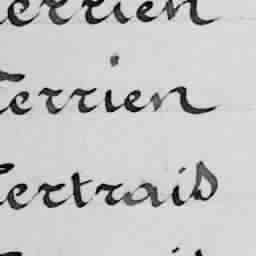 Terrien
Terrien
Tertrais